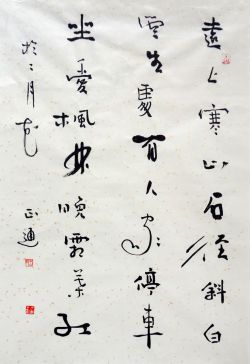 遠上寒山石徑斜白
雲生處有人家停車
坐愛楓林晚霜葉紅
於二月花
正通